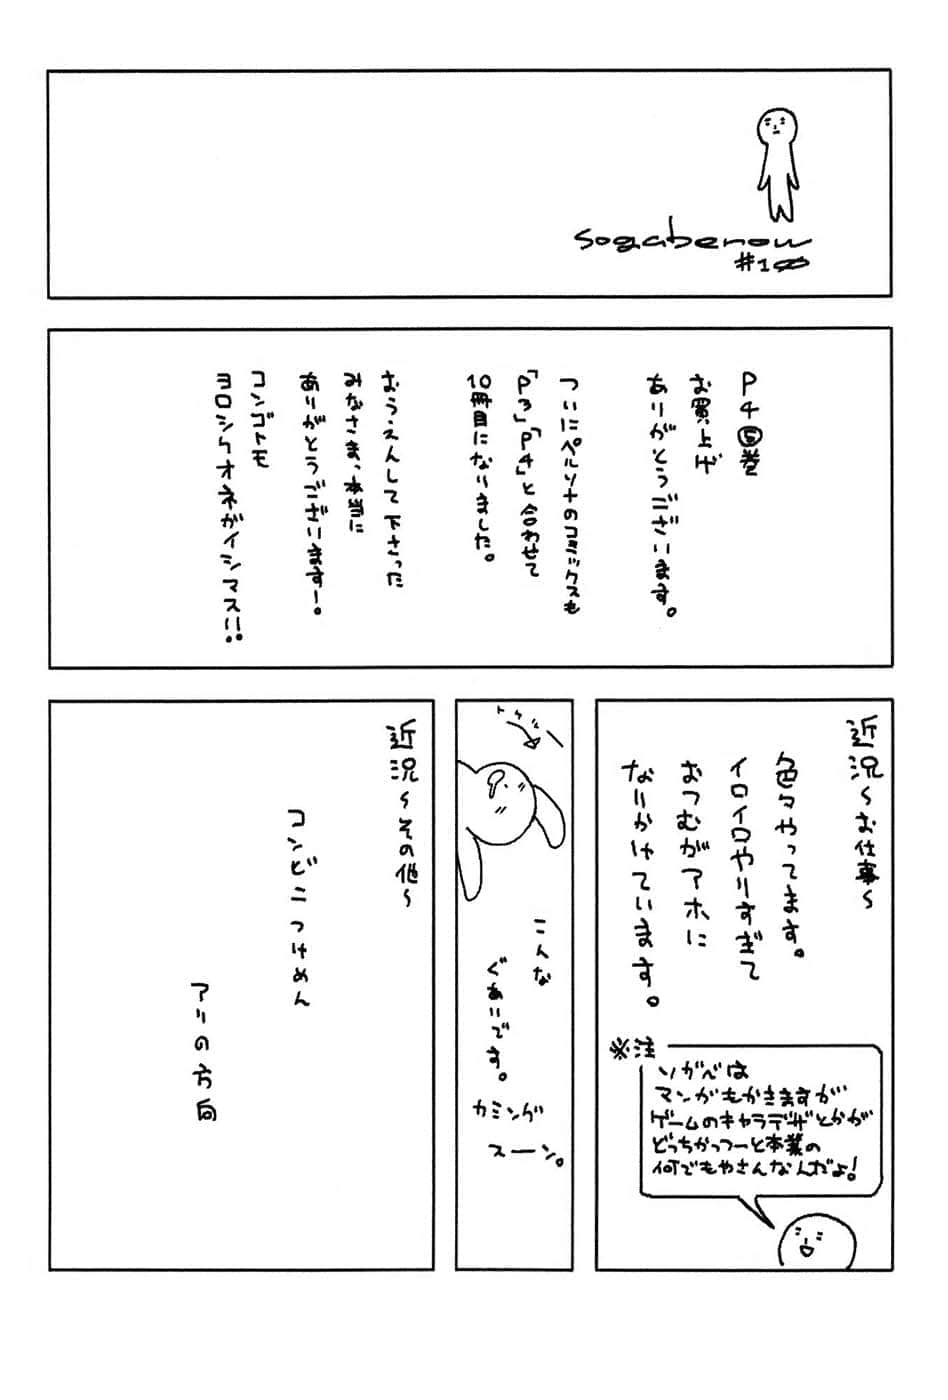 sogabenow
#10
P4⑤巻
お買上げ
ありがとうございます。
ついにペルソナのコミックスも
「P3」「P4」と合わせて
10冊目になりました。
おうえんして下さった
みなさま、本当に
ありがとうございます!。
コンゴトモ
ヨロシクオネガイシマス!!。
近況~お仕事~
色々やってます。
イロイロやりすぎて
おつむがアホに
なりかけています。
※注
ソガベは
マンガもかきますが
ゲームのキャラデザとかが
どっちかっつーと本業の
何でもやさんなんだよ!
こんな
ぐあいです。
カミング
スーン。
近況~その他~
コンビニつけめん
アリの方向